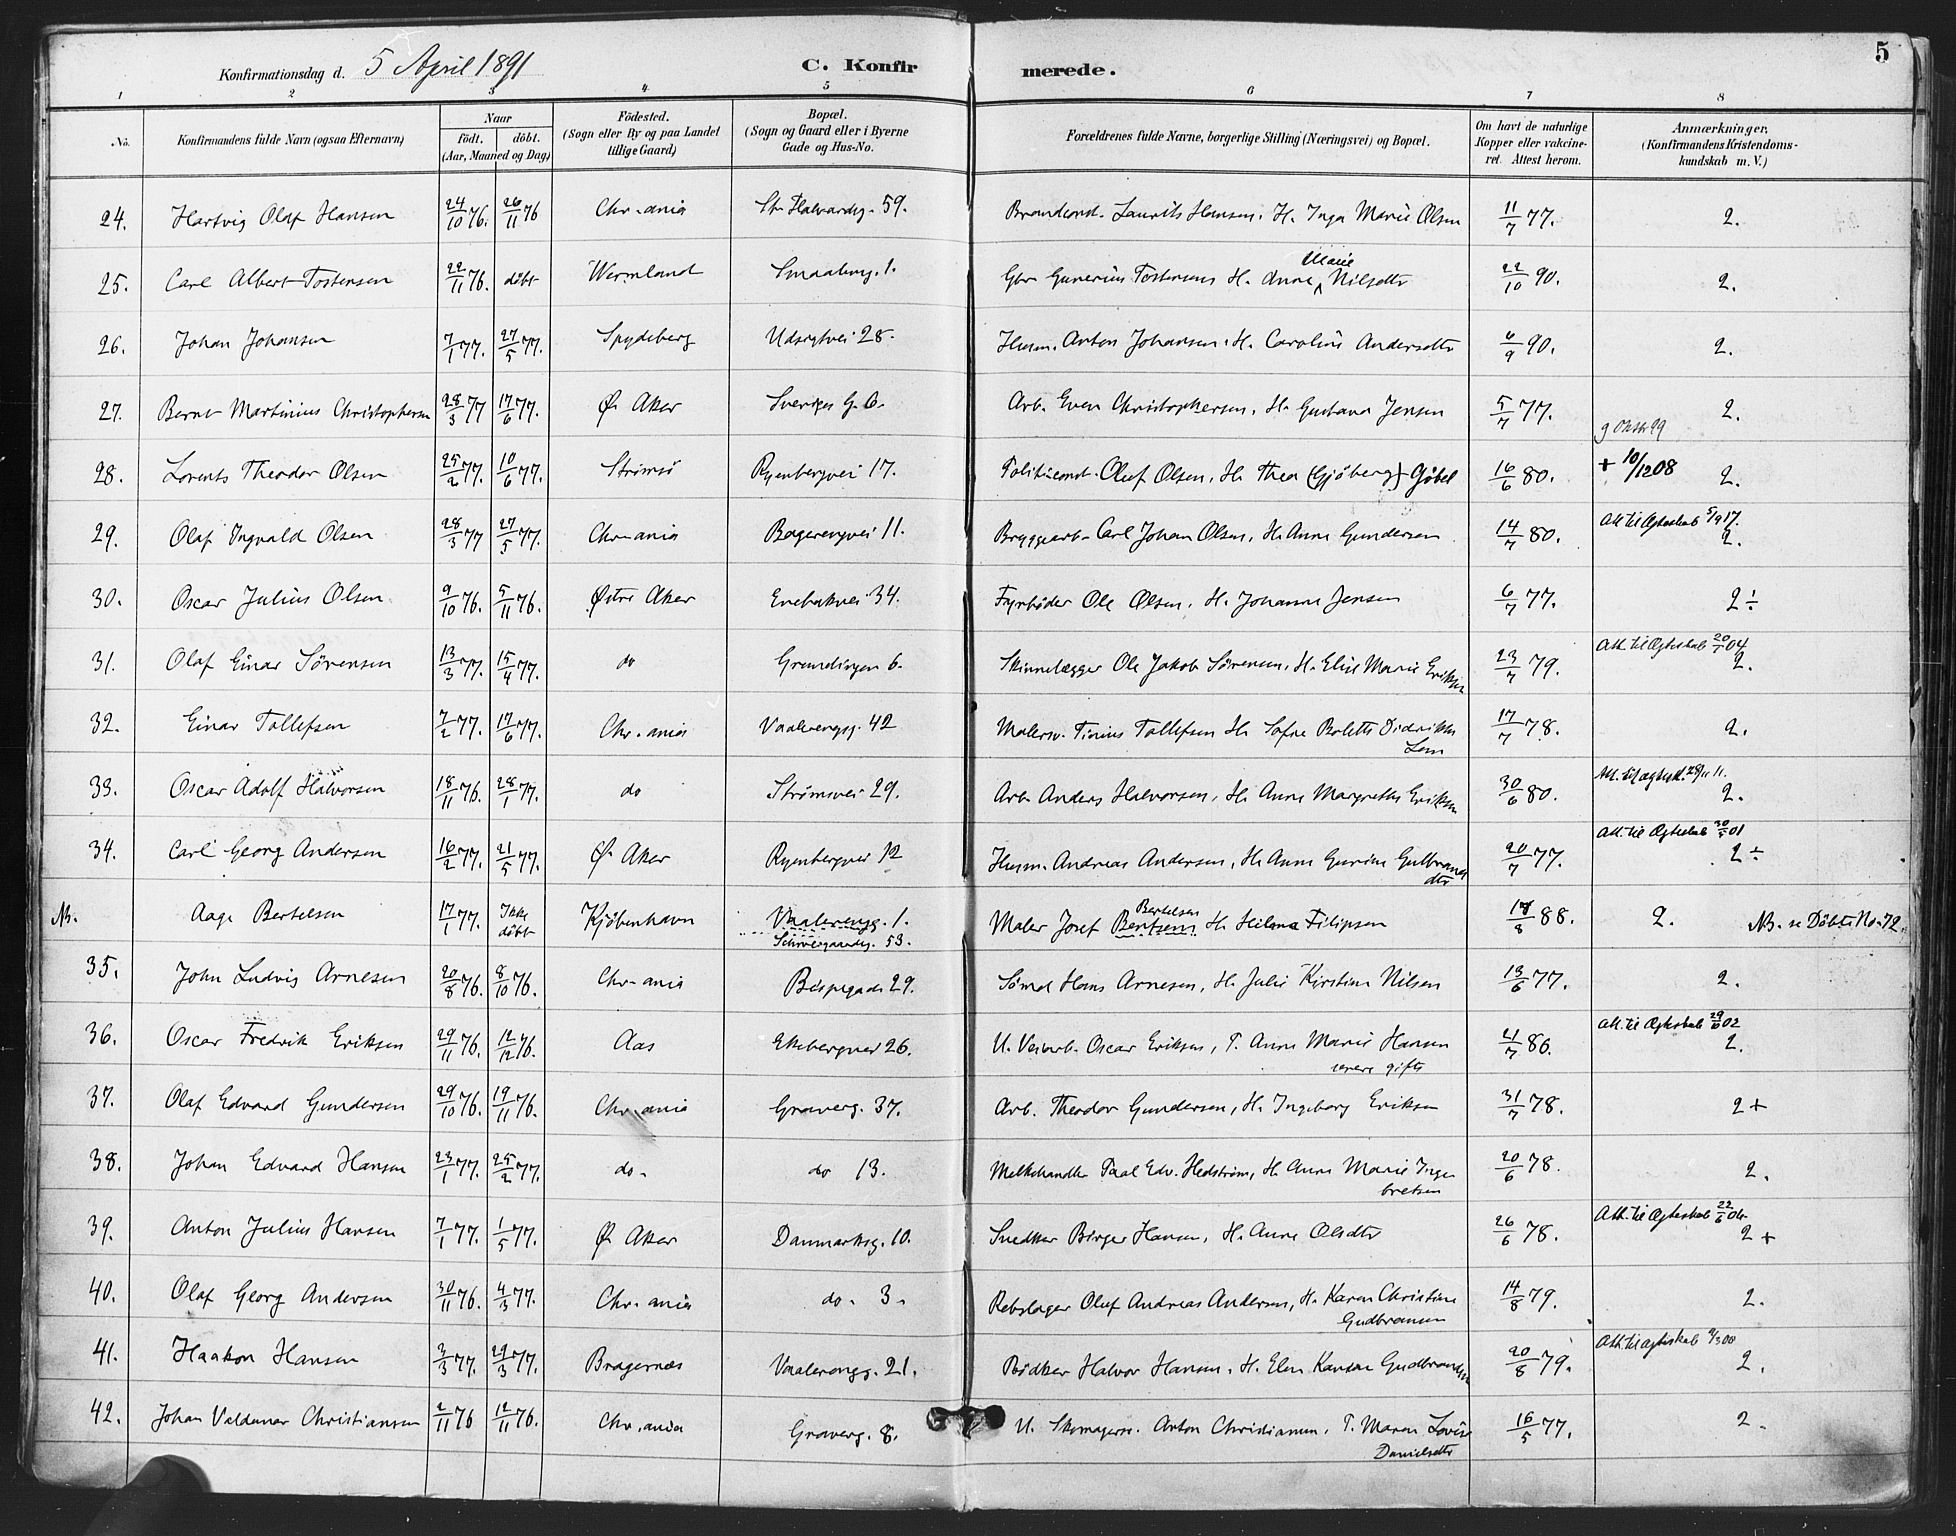 5
Konfirmationsdag d. 5 April 1891 C. Konfirmerede.
1 2 3 4 5 6 7 8
No. Konfirmandens fulde Navn (ogsaa Efternavn) Naar födt. döbt. (Aar, Maaned og Dag) Födested. (Sogn eller By og paa Landet tillige Gaard) Bopæl. (Sogn og Gaard eller i Byerne Gade og Hus-No. Forældrenes fulde Navne, borgerlige Stilling (Næringsvei) og Bopæl. Om havt de naturlige Kopper eller vakcineret. Attest herom. Anmærkninger. (Konfirmandens Kristendomskundskab m. V.)
24. Hartvig Olaf Hansen 24/10 76. 26/11 76 Chr.ania St. Halvardsg. 59. Laurits Hansen. H. Inga Marie Olsen 11/7 77. 2.
25. Carl Albert Tostensen 22/11 76. döbt Wermland Smaalensg. 1. Gbr Gunerius Tostensens H. Anna Marie Nilsdtr 22/10 90. 2.
26. Johan Johansen 7/1 77. 27/5 77. Spydeberg Udsigtvei 28. Husm. Anton Johansen. H. Caroline Andersdtr 6/9 90. 2.
27. Bernt Martinius Christophersen 28/3 77 17/6 77. Ø. Aker Sveriges G. 6. Arb. Even Christophersen. H. Gustava Jensen 5/7 77. 2.
28. Lorents Theodor Olsen 25/2 77. 10/6 77. Strömsö Ryenbergvei 17. Politiconst. Oluf Olsen, H. Thea (Gjöberg) Göbel 16/6 80. + 10/12 08 2.
29. Olaf Ingvald Olsen 28/3 77 27/5 77. Chr.ania Bogerengvei 11. Bryggearb. Carl Johan Olsen, H. Anne Gundersen 14/7 80. Att. til Ægteskab 5/9 17. 2.
30. Oscar Julius Olsen 9/10 76. 5/11 76. Østre Aker Enebakvei 34. Fyrböder Ole Olsen. H. Johanne Jensen 6/7 77. 2 ÷
31. Olaf Einar Sörensen 13/3 77. 15/4 77. do Grundingen 6. Skinnelægger Ole Jakob Sörensen, H. Elise Marie Eriksen 23/7 79. Att. til Ægteskab 20/1 04 2.
32. Einar Tollefsen 7/2 77. 17/6 77. Chr.ania Vaalerengg. 42 Malersv. Tinius Tollefsen H. Sofie Bolette Didrikke Lem 17/7 78. 2.
33. Oscar Adolf Halvorsen 18/11 76. 28/1 77. do Strömsvei 29. Arb. Anders Halvorsen, H. Anne Margrethe Eriksen 30/6 80. 2.
34. Carl Georg Andersen 16/2 77. 21/5 77. Ø. Aker Ryenbergvei 12 Husm. Andreas Andersen, H. Anne Gurine Gulbrandsdtr 20/7 77. Att. til Ægteskab 30/5 01 2 ÷
Nb. Aage Bertelsen 17/1 77. Ikke döbt Kjöbenhavn Vaalerengg. 1. Schweigaardsg. 53. Maler Josef Bentsens Bertelsen H. Helene Filipsen 88. 2. Nb. se Döbte No. 72.
35. John Ludvig Arnesen 20/8 76. 8/10 76. Chr.ania Bispegade 29. Sömd Hans Arnesen, H. Julie Kirstine Nilsen 13/6 77. 2.
36. Oscar Fredrik Eriksen 29/11 76. 12/12 76. Aas Ekebergvei 26. U. Veiarb. Oscar Eriksen, P. Anne Marie Hansen senere gifte 21/7 86. Att. til Ægteskab 29/6 02 2.
37. Olaf Edvard Gundersen 29/10 76. 19/11 76. Chr.ania Graverg. 37. Arb. Theodor Gundersen, H. Ingeborg Eriksen 31/7 78. 2 +
38. Johan Edvard Hansen 23/1 77. 25/2 77. do. do 13. Melkehandler Paal Edv. Hedström, H. Anne Marie Ingebretsen 20/6 78. 2.
39. Anton Julius Hansen 7/1 77. 1/5 77. Ø. Aker Danmarksg. 10. Snedker Birger Hansen, H. Anne Olsdtr 26/6 78. Att. til Ægteskab 22/6 04 2 +
40. Olaf Georg Andersen 30/11 76. 4/3 77. Chr.ania do. 3. Rebslager Oluf Andreas Andersen, H. Karen Christine Gudbransen 14/8 79. 2.
41. Haakon Hansen 2/3 77. 29/3 77. Bragernæs Vaalerengg. 21. Bödker Halvor Hansen. H. Elen Kanson Gudbrandsen 20/8 79. Att. til Ægteskab 9/3 00 2.
42. Johan Valdemar Christiansen 2/11 76 12/11 76. Chr.ania Graverg. 8. U. Skomagersv. Anton Christiansen. P. Maren Lovise Danielsdtr 16/5 77. 2.